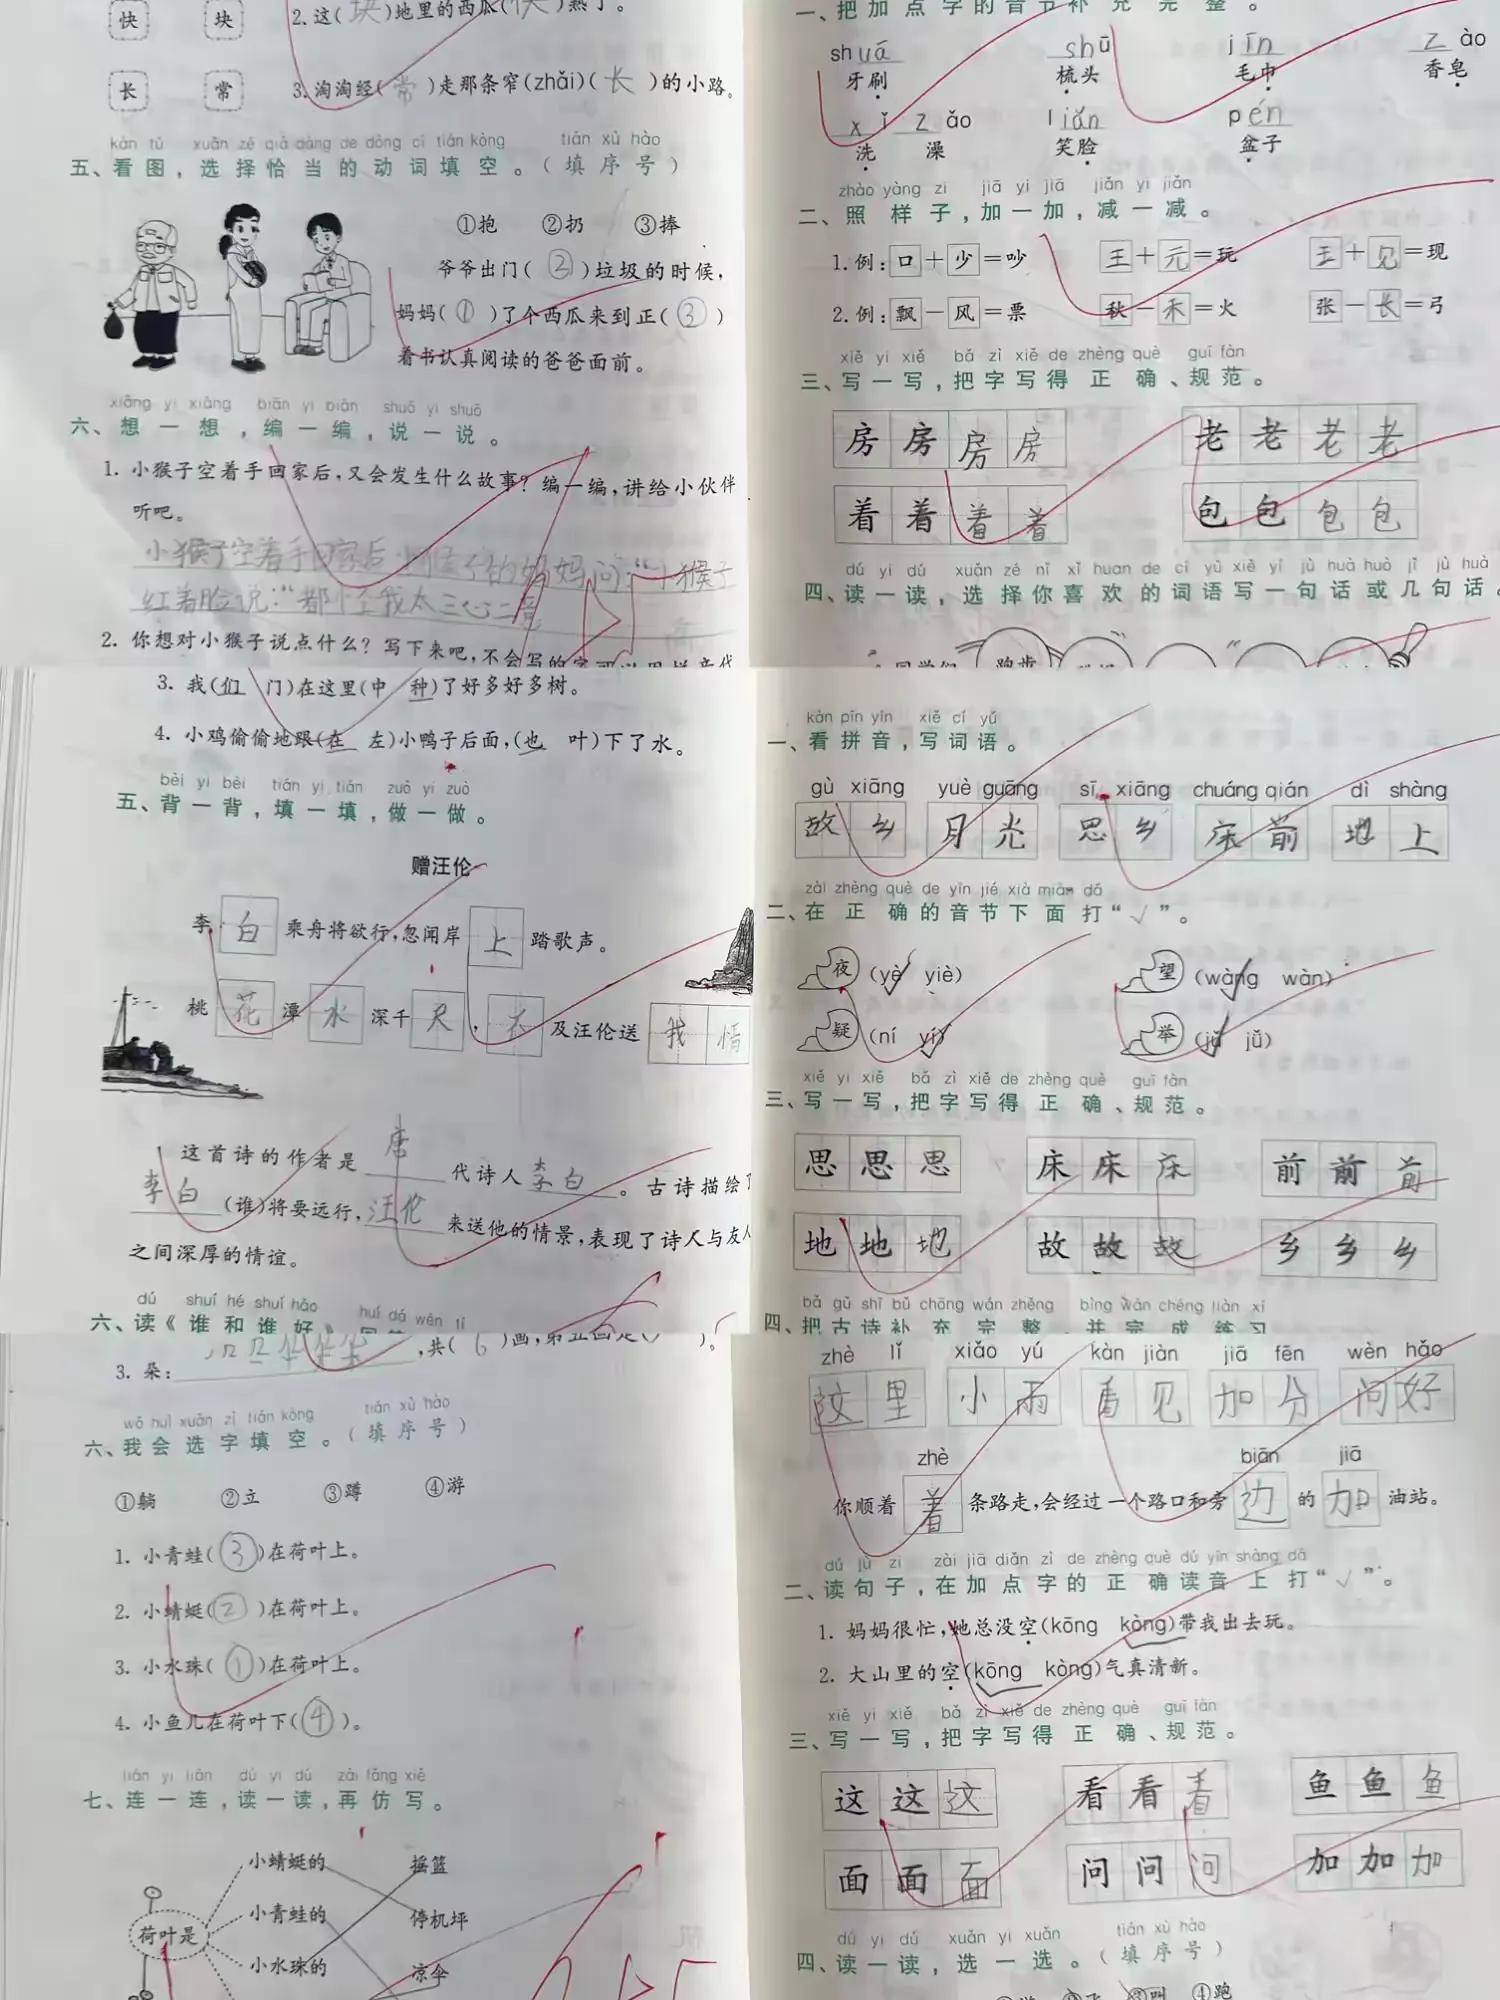 快 块 2.这(块)地里的西瓜(快)熟了。
长 常 3.淘淘经(常)走那条窄(zhǎi)(长)的小路。
kàn tú xuǎn zé qià dàng de dòng cí tián kòng tián xù hào
五、看图，选择恰当的动词填空。(填序号)
①抱 ②扔 ③捧
爷爷出门(②)垃圾的时候，
妈妈(①)了个西瓜来到正(③)
着书认真阅读的爸爸面前。
xiǎng yi xiǎng biān yi biān shuō yi shuō
六、想一想，编一编，说一说。
1. 小猴子空着手回家后，又会发生什么故事？编一编，讲给小伙伴
听吧。
小猴子空着手回家后小猴子的妈妈问：“小猴子
红着脸说：“都怪我太三心二意
2. 你想对小猴子说点什么？写下来吧，不会写的字可以用拼音代
一、把加点字的音节补充完整。
shuā shū jīn zào
牙刷 梳头 毛巾 香皂
xǐ zǎo liǎn pén
洗澡 笑脸 盆子
zhào yàng zi jiā yi jiā jiǎn yi jiǎn
二、照样子，加一加，减一减。
1.例：口＋少＝吵 王＋元＝玩 王＋见＝现
2.例：飘－风＝票 秋－禾＝火 张－长＝弓
xiě yi xiě bǎ zì xiě de zhèng què guī fàn
三、写一写，把字写得正确、规范。
房 房 房 房 老 老 老 老
着 着 着 着 包 包 包 包
dú yi dú xuǎn zé nǐ xǐ huan de cí yǔ xiě yí jù huà huò jǐ jù huà
四、读一读，选择你喜欢的词语写一句话或几句话。
跑步
3. 我(们 门)在这里(中 种)了好多好多树。
4. 小鸡偷偷地跟(在 左)小鸭子后面，(也 叶)下了水。
bèi yi bèi tián yi tián zuò yi zuò
五、背一背，填一填，做一做。
赠汪伦
李白乘舟将欲行，忽闻岸上踏歌声。
桃花潭水深千尺，不及汪伦送我情
这首诗的作者是唐代诗人李白。古诗描绘了
李白(谁)将要远行，汪伦来送他的情景，表现了诗人与友人
之间深厚的情谊。
dú shuí hé shuí hǎo huí dá wèn tí
六、读《谁和谁好》
kàn pīn yīn xiě cí yǔ
一、看拼音，写词语。
gù xiāng yuè guāng sī xiāng chuáng qián dì shàng
故乡 月光 思乡 床前 地上
zài zhèng què de yīn jié xià miàn dǎ
二、在正确的音节下面打“√”。
夜(yè√ yiè) 望(wàng√ wàn)
疑(ní yí√) 举(jǔ√ jǚ)
xiě yi xiě bǎ zì xiě de zhèng què guī fàn
三、写一写，把字写得正确、规范。
思 思 思 床 床 床 前 前 前
地 地 地 故 故 故 乡 乡 乡
bǎ gǔ shī bǔ chōng wán zhěng bìng wán chéng liàn xí
四、把古诗补充完整，并完成练习
3. 朵： ，共(6)画，第五画是( )。
wǒ huì xuǎn zì tián kòng tián xù hào
六、我会选字填空。(填序号)
①躺 ②立 ③蹲 ④游
1. 小青蛙(③)在荷叶上。
2. 小蜻蜓(②)在荷叶上。
3. 小水珠(①)在荷叶上。
4. 小鱼儿在荷叶下(④)。
lián yi lián dú yi dú zài fǎng xiě
七、连一连，读一读，再仿写。
小蜻蜓的 摇篮
小青蛙的 停机坪
荷叶是
小水珠的 凉伞
zhè lǐ xiǎo yú kàn jiàn jiā fēn wèn hǎo
这里 小雨 看见 加分 问好
zhè biān jiā
你顺着着条路走，会经过一个路口和旁边的加油站。
dú jù zi zài jiā diǎn zì de zhèng què dú yīn shàng dǎ
二、读句子，在加点字的正确读音上打“√”。
1. 妈妈很忙，她总没空(kōng kòng)带我出去玩。
2. 大山里的空(kōng kòng)气真清新。
xiě yi xiě bǎ zì xiě de zhèng què guī fàn
三、写一写，把字写得正确、规范。
这 这 这 看 看 看 鱼 鱼 鱼
面 面 面 问 问 问 加 加 加
dú yi dú xuǎn yi xuǎn tián xù hào
四、读一读，选一选。(填序号)
③叫 ④跑